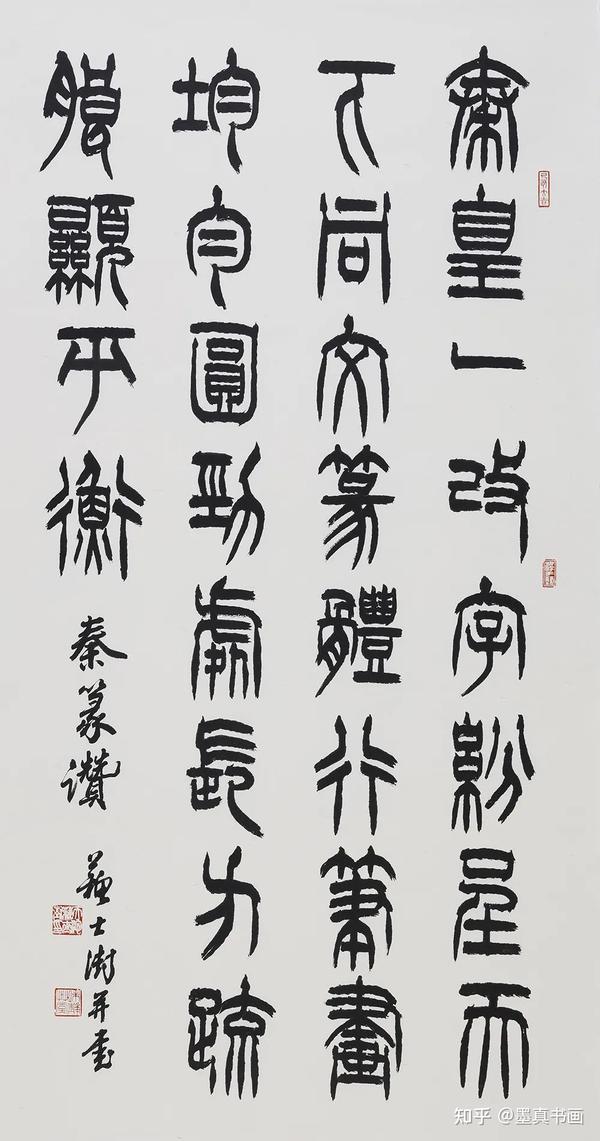 秦皇一改字紛呈天
下同文篆體行筆畫
均勻圓勁處長方疏
朗顯平衡
秦篆讚 蘇士澍并書
知乎 @墨真书画